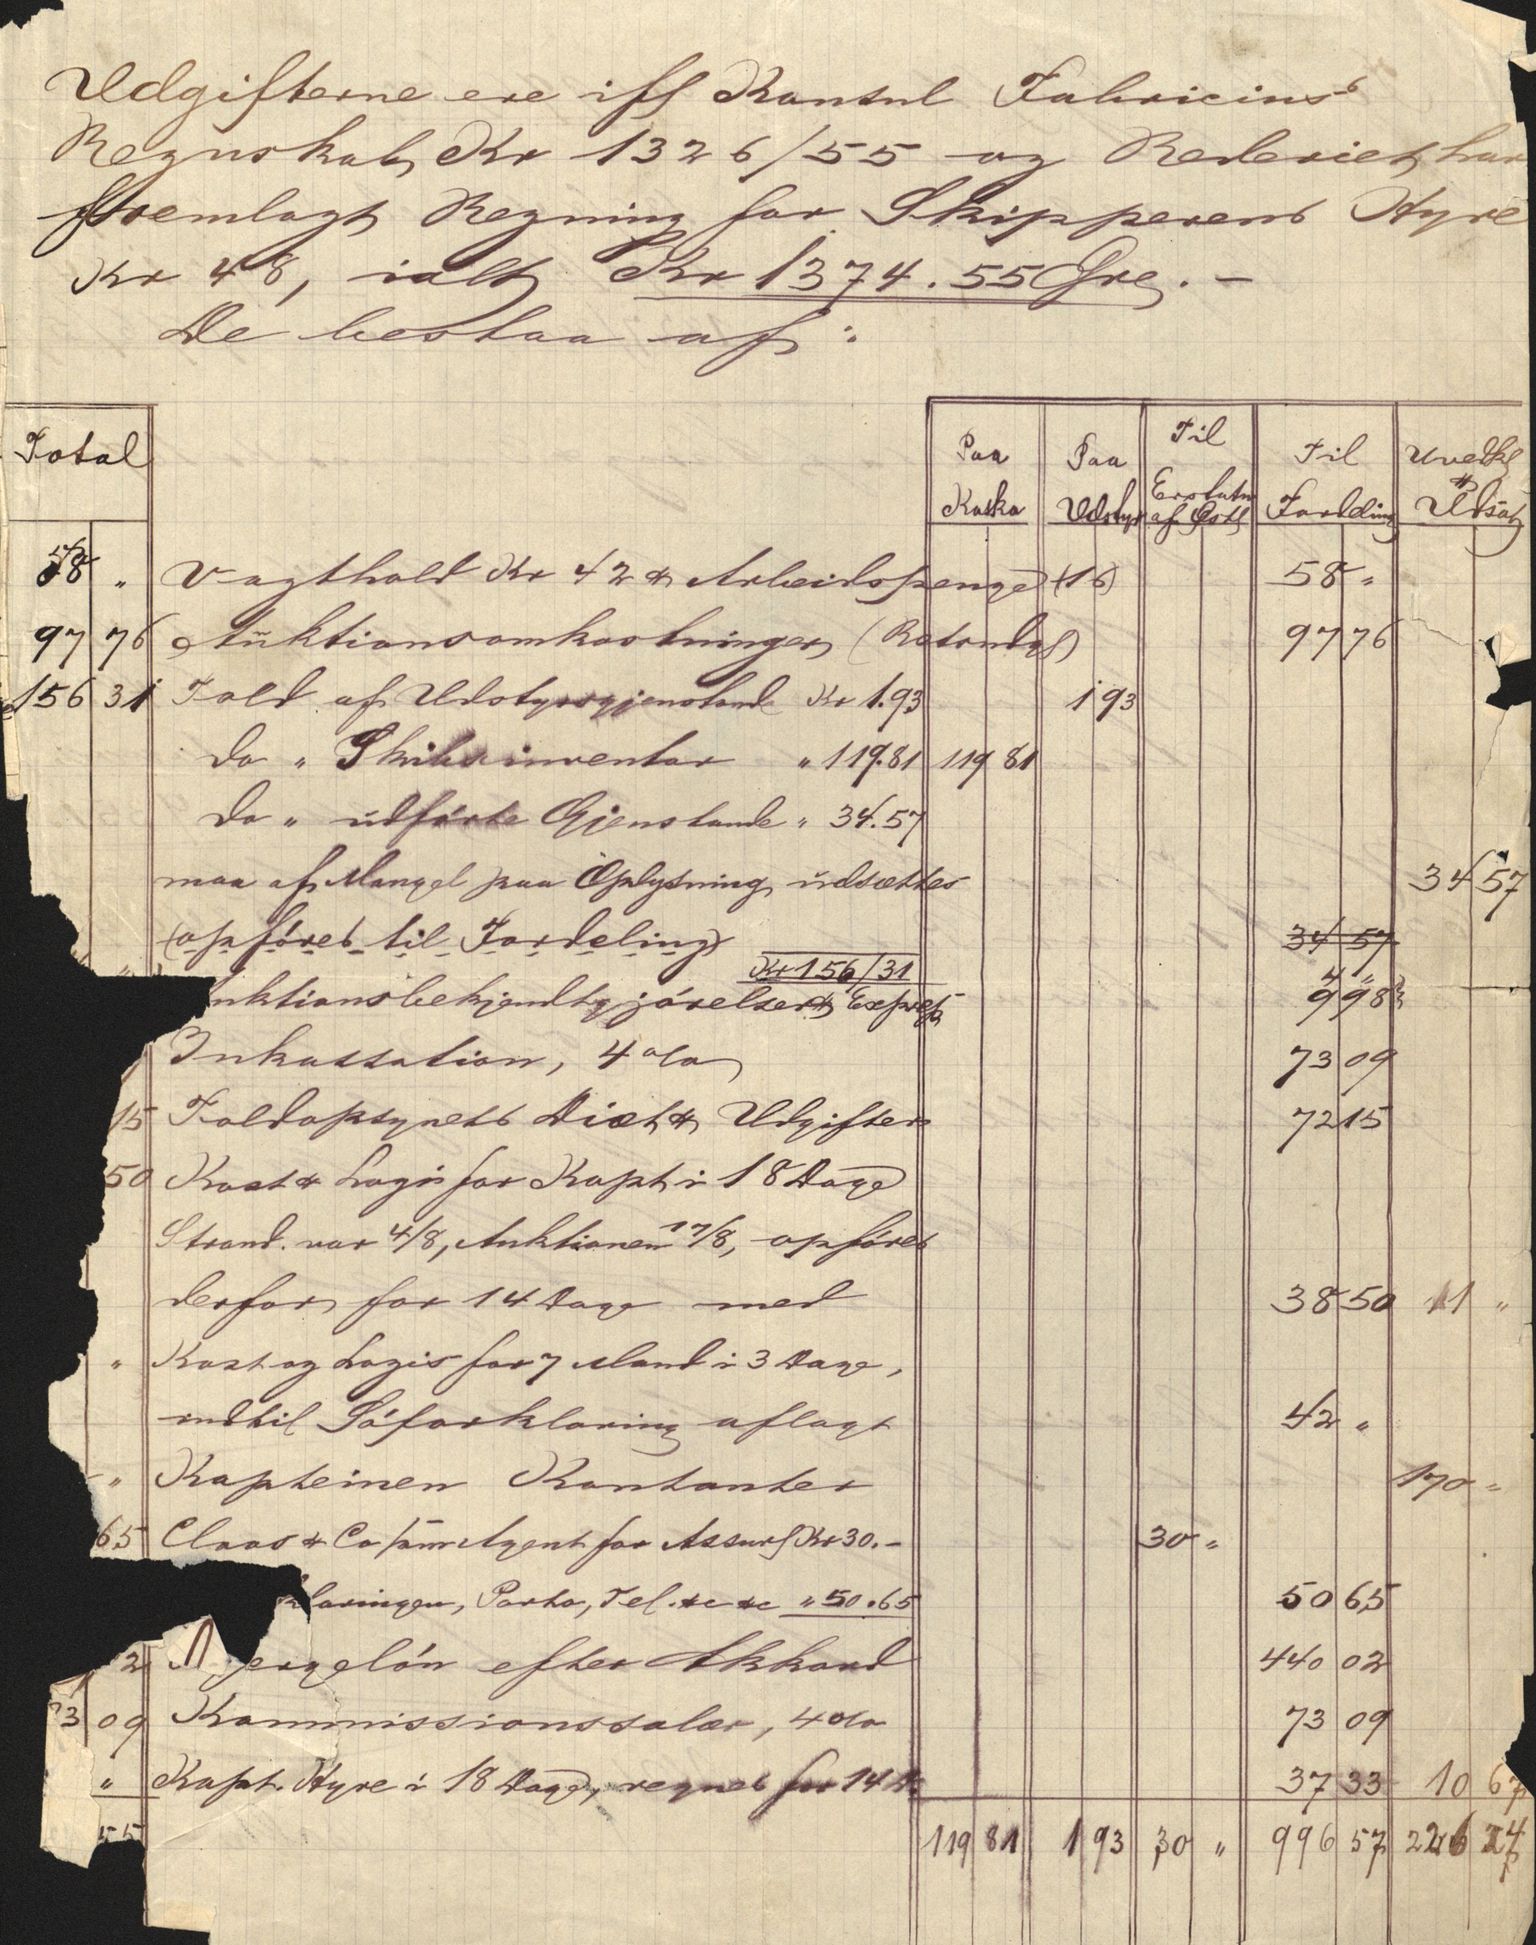 Udgifterne ere ifl Konsul Fabricius's
Regnskab, Kr 1326/55 og Rederiet har
fremlagt Regning for Skipperens Hyre
Kr 48, ialt Kr 1374.55 Øre. –
De bestaa af:
Total Paa Kasko Paa Udstyr Til Erstatn af Til Fordeling Uvedk & Udsat
58 „ Vagthold Kr 42 & Arbeidspenge (16) 58 „
97 76 Auktionsomkostninger, 97 76
156 31 Told af Udstyrsgjenstand Kr 1.93 1 93
Do „ Skibsinventar „ 119.81 119 81
Do „ udførte Gjenstande „ 34.57
maa af Mangel paa Oplysning udsættes 34 57
(opføres til Fordeling) 34 57
Kr 156/31
uktionsbekjendtgjørelser & Express
Inkassation, 4 o/o 73 09
15 Toldopsynets Diæt & Udgifter 72 15
50 Kost & Logis for Kapt i 18 Dage
Strand. var 4/8, Auktionen 17/8, opføres
derfor for 14 Dage med 38 50 11 „
„ Kost og Logis for 7 Mand i 3 Dage,
indtil Søforklaring aflagt 42 „
„ Kapteinen Kontanter 170 „
65 Claas & Co som Agent for Assurf Kr 30.– 30 „
klaringen, Porto, Tel. &c &c „ 50.65 50 65
2 ergeløn efter Akkord 440 02
73 09 Kommissionssalær, 4 o/o 73 09
„ Kapt. Hyre i 18 Dage, regnes for 14 D. 37 33 10 67
55 119 81 1 93 30 „ 996 57 226 24